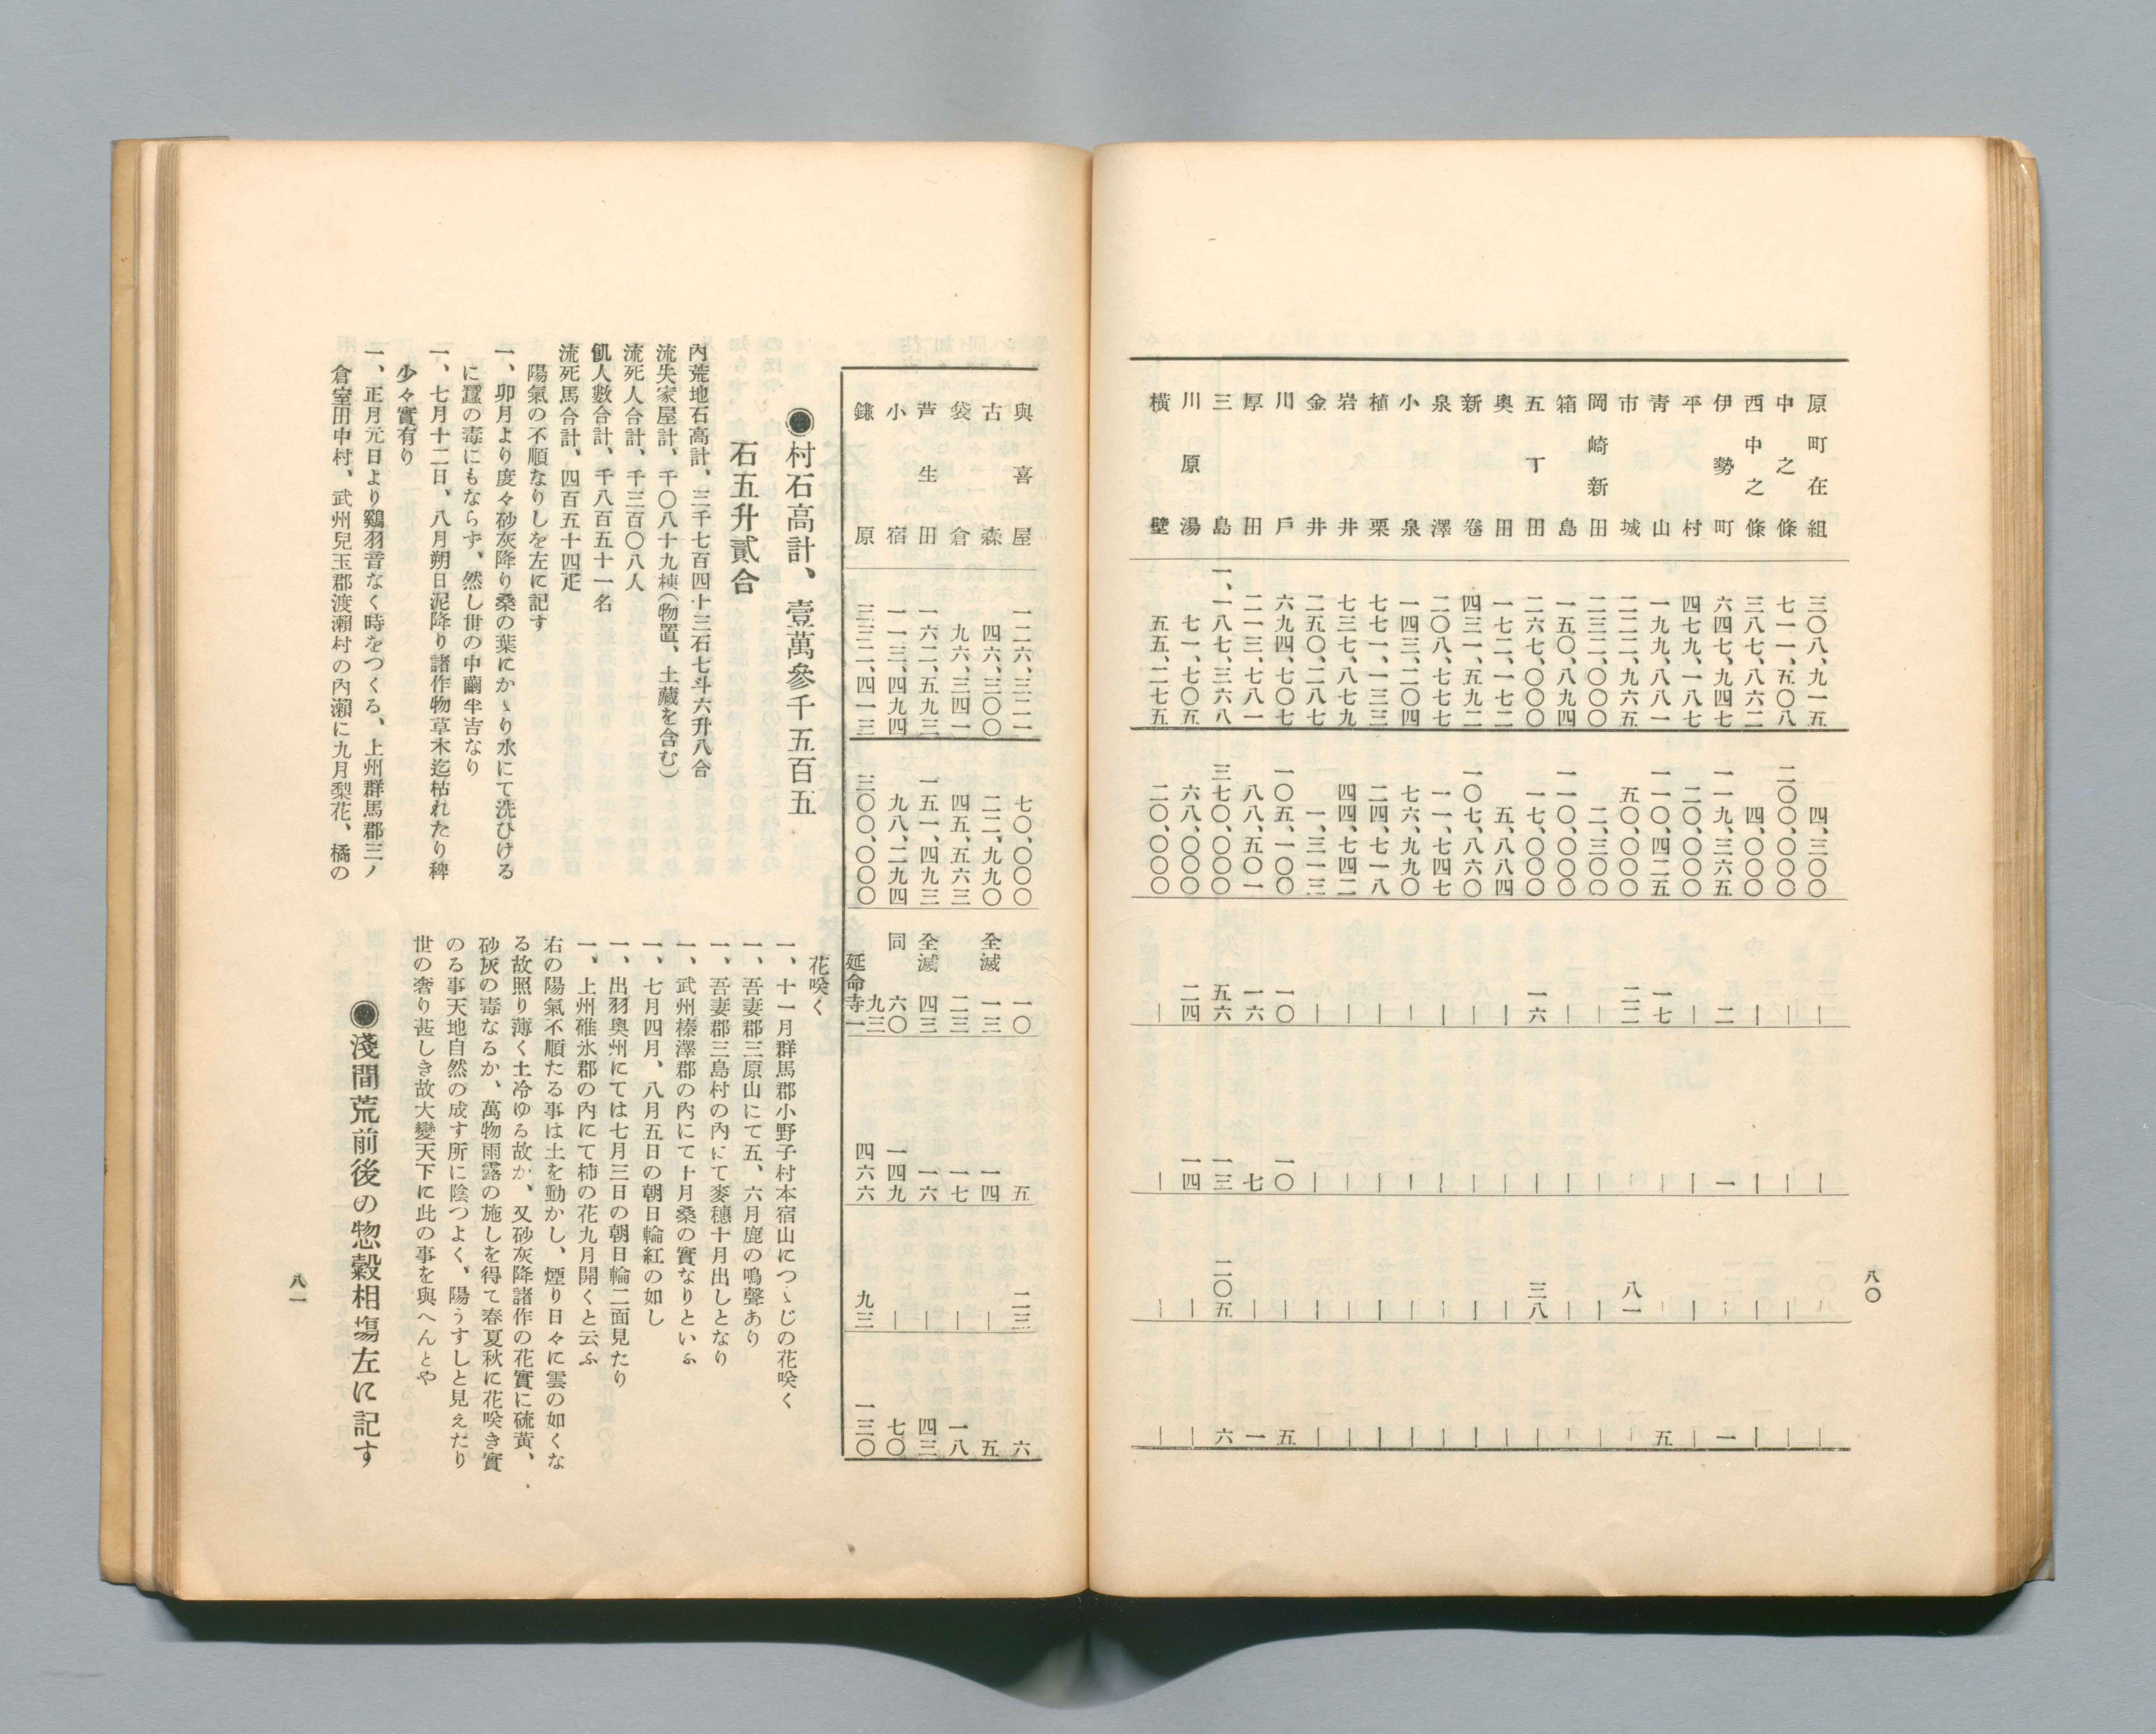 原町在組 三〇八、九一五 四、三〇〇 | | | |
中之條 七一一、五〇八 二〇〇、〇〇〇 | | | |
西中之條 三八七、八六二 四、〇〇〇 | | | |
伊勢町 六四七、九四七 一一九、三六五 二 一 | 一
平村 四七九、一八七 二〇、〇〇〇 | | | |
青山 一九九、八八一 一一〇、四二五 一七 | | 五
市城 二二二、九六五 五〇、〇〇〇 二二 | 八一 |
岡崎新田 二三二、〇〇〇 二、三〇〇 | | | |
箱島 一五〇、八九四 一一〇、〇〇〇 | | | |
五丁田 二六七、〇〇〇 一七、〇〇〇 一六 | 三八 |
奥田 一七二、一七二 五、八八四 | | | |
新卷 四三一、五九二 一〇七、八六〇 | | | |
泉澤 二〇八、七七七 一一、七四七 | | | |
小泉 一四三、二〇四 七六、九九〇 | | | |
植栗 七七一、一三三 二四、七一八 | | | |
岩井 七三七、八七九 四四、七四二 | | | |
金井 二五〇、二八七 一、三一三 | | | |
川戸 六九四、七〇七 一〇五、一〇〇 一〇 一〇 | 五
厚田 二一三、七八一 八八、五〇一 一六 七 | 一
三島 一、一八七、三六八 三七〇、〇〇〇 五六 一三 二〇五 六
川原湯 七一、七〇五 六八、〇〇〇 二四 一四 | |
横壁 五五、二七五 二〇、〇〇〇 | | | |
八〇
與喜屋 一二六、三二一 七〇、〇〇〇 一〇 五 二三 六
古森 四六、三〇〇 二二、九九〇 全滅 一三 一四 | 五
袋倉 九六、三四一 四五、五六三 二三 一七 | 一八
芦生田 一六二、五九三 一五一、四九三 全滅 四三 一六 | 四三
小宿 一一三、四九四 九八、二九四 同 六〇 一四九 | 七〇
鎌原 三三二、四一三 三〇〇、〇〇〇 延命寺一 九三 四六六 九三 一三〇
●村石高計、壹萬參千五百五
石五升貳合
內荒地石高計、三千七百四十三石七斗六升八合
流失家屋計、千〇八十九棟(物置、土藏を含む)
流死人合計、千三百〇八人
飢人數合計、千八百五十一名
流死馬合計、四百五十四疋
陽氣の不順なりしを左に記す
一、卯月より度々砂灰降り桑の葉にかゝり水にて洗ひける
に蠶の毒にもならず、然し世の中繭半吉なり
一、七月十二日、八月朔日泥降り諸作物草木迄枯れたり稗
少々實有り
一、正月元日より鷄羽音なく時をつくる、上州群馬郡三ノ
倉室田中村、武州兒玉郡渡瀨村の內瀨に九月梨花、橘の
花咲く
一、十一月群馬郡小野子村本宿山につゝじの花咲く
一、吾妻郡三原山にて五、六月鹿の鳴聲あり
一、吾妻郡三島村の內にて麥穗十月出しとなり
一、武州榛澤郡の內にて十月桑の實なりといふ
一、七月四月、八月五日の朝日輪紅の如し
一、出羽奥州にては七月三日の朝日輪二面見たり
一、上州碓氷郡の內にて柿の花九月開くと云ふ
右の陽氣不順たる事は土を動かし、煙り日々に雲の如くな
る故照り薄く土冷ゆる故か、又砂灰降諸作の花實に硫黃、
砂灰の毒なるか、萬物雨露の施しを得て春夏秋に花咲き實
のる事天地自然の成す所に陰つよく、陽うすしと見えたり
世の奢り甚しき故大變天下に此の事を與へんとや
●淺間荒前後の惣穀相塲左に記す
八一